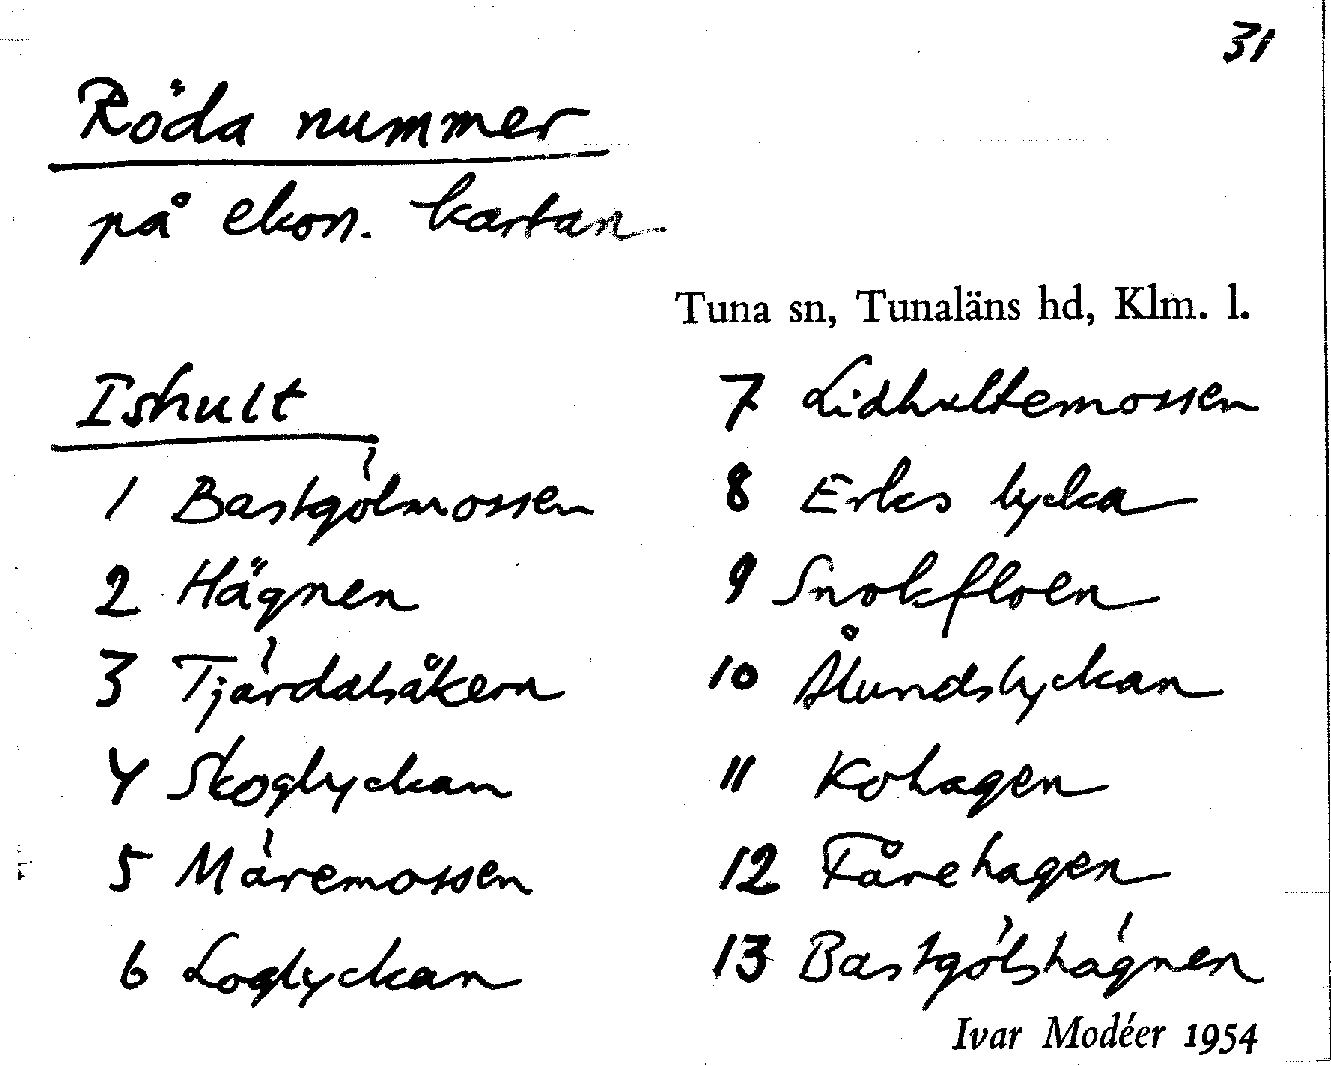 31
Röda nummer
på ekon. kartan.
Tuna sn, Tunaläns hd, Klm. l.
Ishult
1 Bastgölmossen
2 Hägnen
3 Tjärdalsåkern
4 Skoglyckan
5 Märemossen
6 Loglyckan
7 Lidhultemossen
8 Erks lycka
9 Snokfloen
10 Ålundslyckan
11 Kohagen
12 Fårehagen
13 Bastgölshägnen
Ivar Modéer 1954